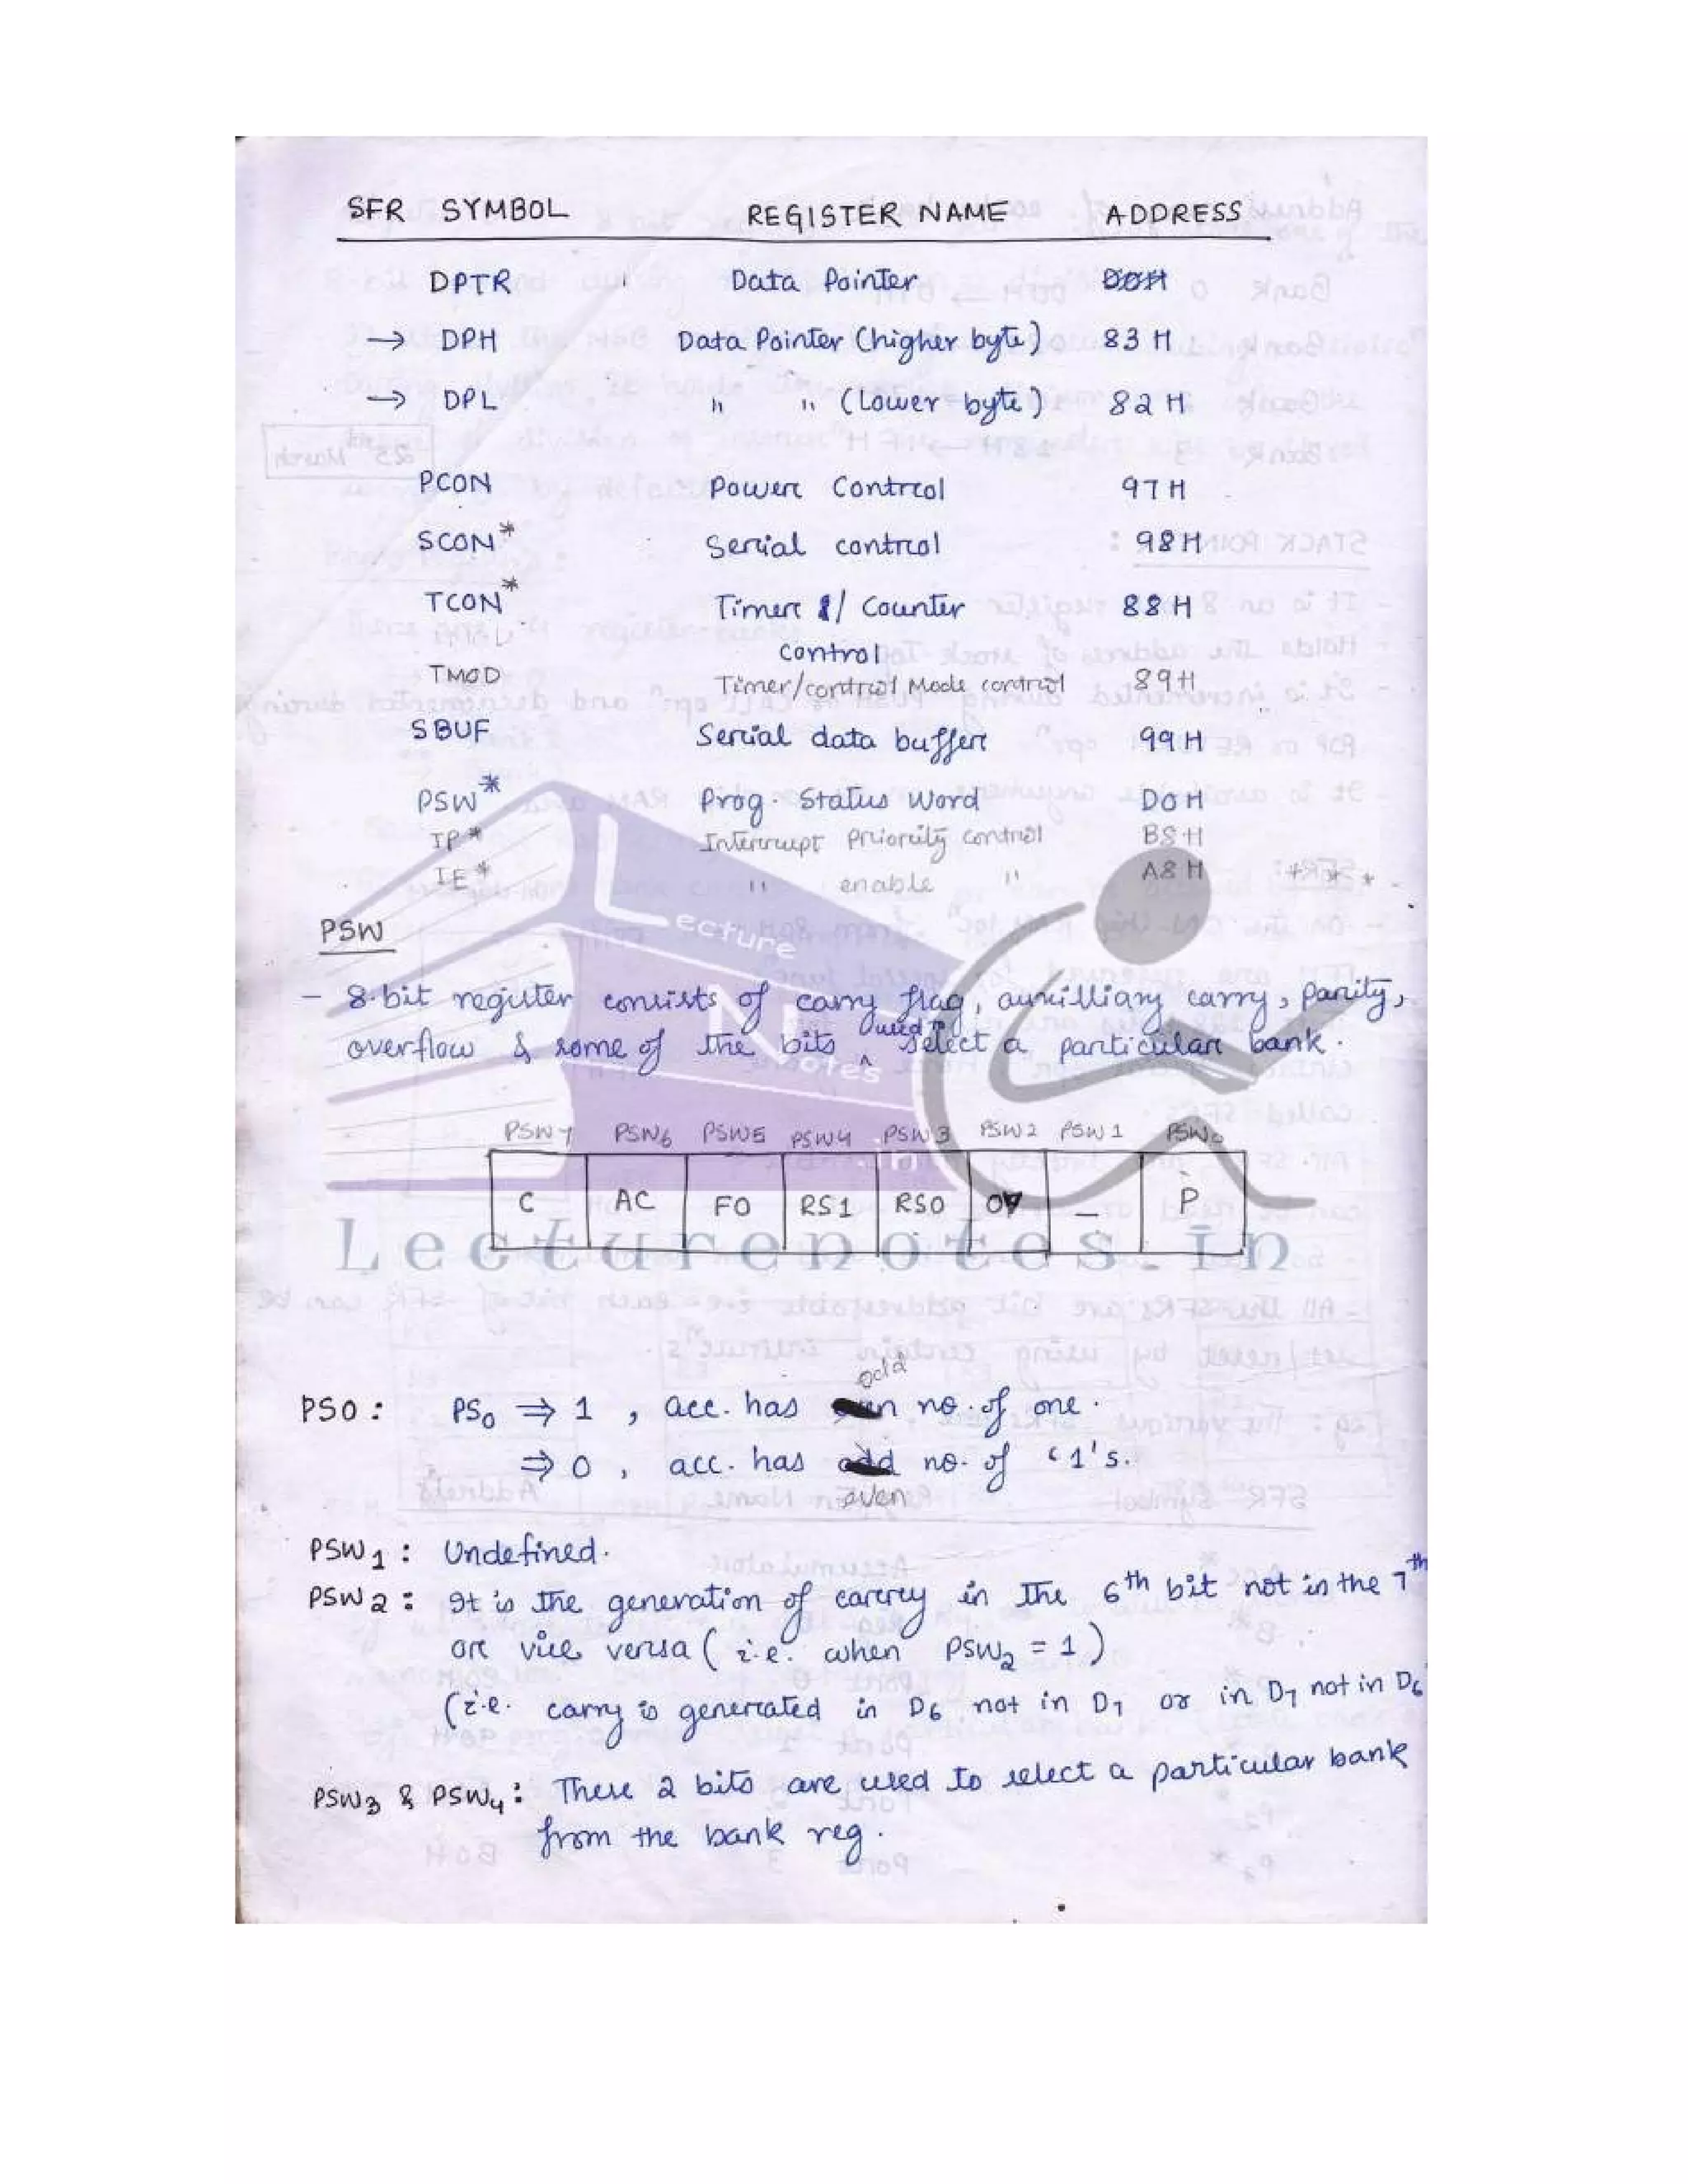 SFR SYMBOL REGISTER NAME ADDRESS
DPTR Data Pointer
→ DPH Data Pointer (higher byte) 83 H
→ DPL " " (Lower byte) 82 H
PCON Power Control 97 H
SCON* Serial control 98 H
TCON* Timer / Counter 88 H
control
TMOD Timer/control Mode control 89H
SBUF Serial data buffer 99 H
PSW* Prog. Status Word D0 H
IP* Interrupt Priority control B8 H
IE* " enable " A8 H
PSW
- 8-bit register consists of carry flag, auxilliary carry, parity,
overflow & some of the bits used to select a particular bank.
PSW7 PSW6 PSW5 PSW4 PSW3 PSW2 PSW1 PSW0
C AC F0 RS1 RS0 OV – P
Lecture Notes .in
Lecturenotes.in
PS0: PS0 ⇒ 1 , acc. has odd no. of one.
⇒ 0 , acc. has even no. of '1's.
PSW1 : Undefined.
PSW2 : It is the generation of carry in the 6th bit not in the 7th
or vice versa ( i.e. when PSW2 = 1 )
(i.e. carry is generated in D6 not in D7 or in D7 not in D6
PSW3 & PSW4 : These 2 bits are used to select a particular bank
from the bank reg.